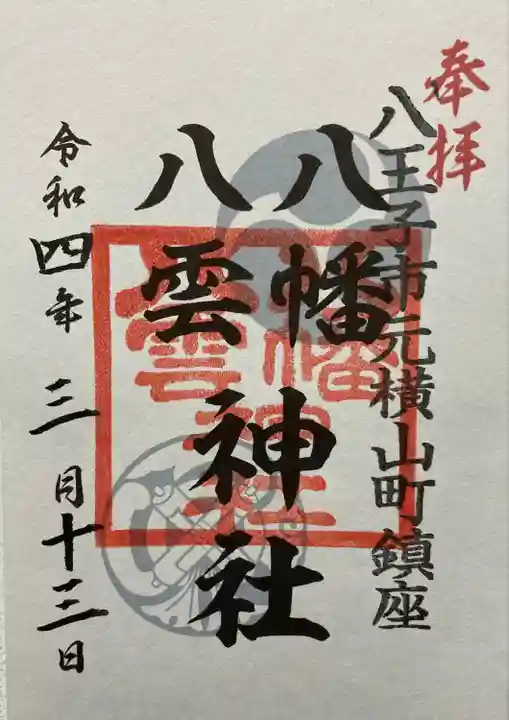 奉拝
八王子市元横山町鎮座
八幡
八雲
神社
令和四年三月十三日